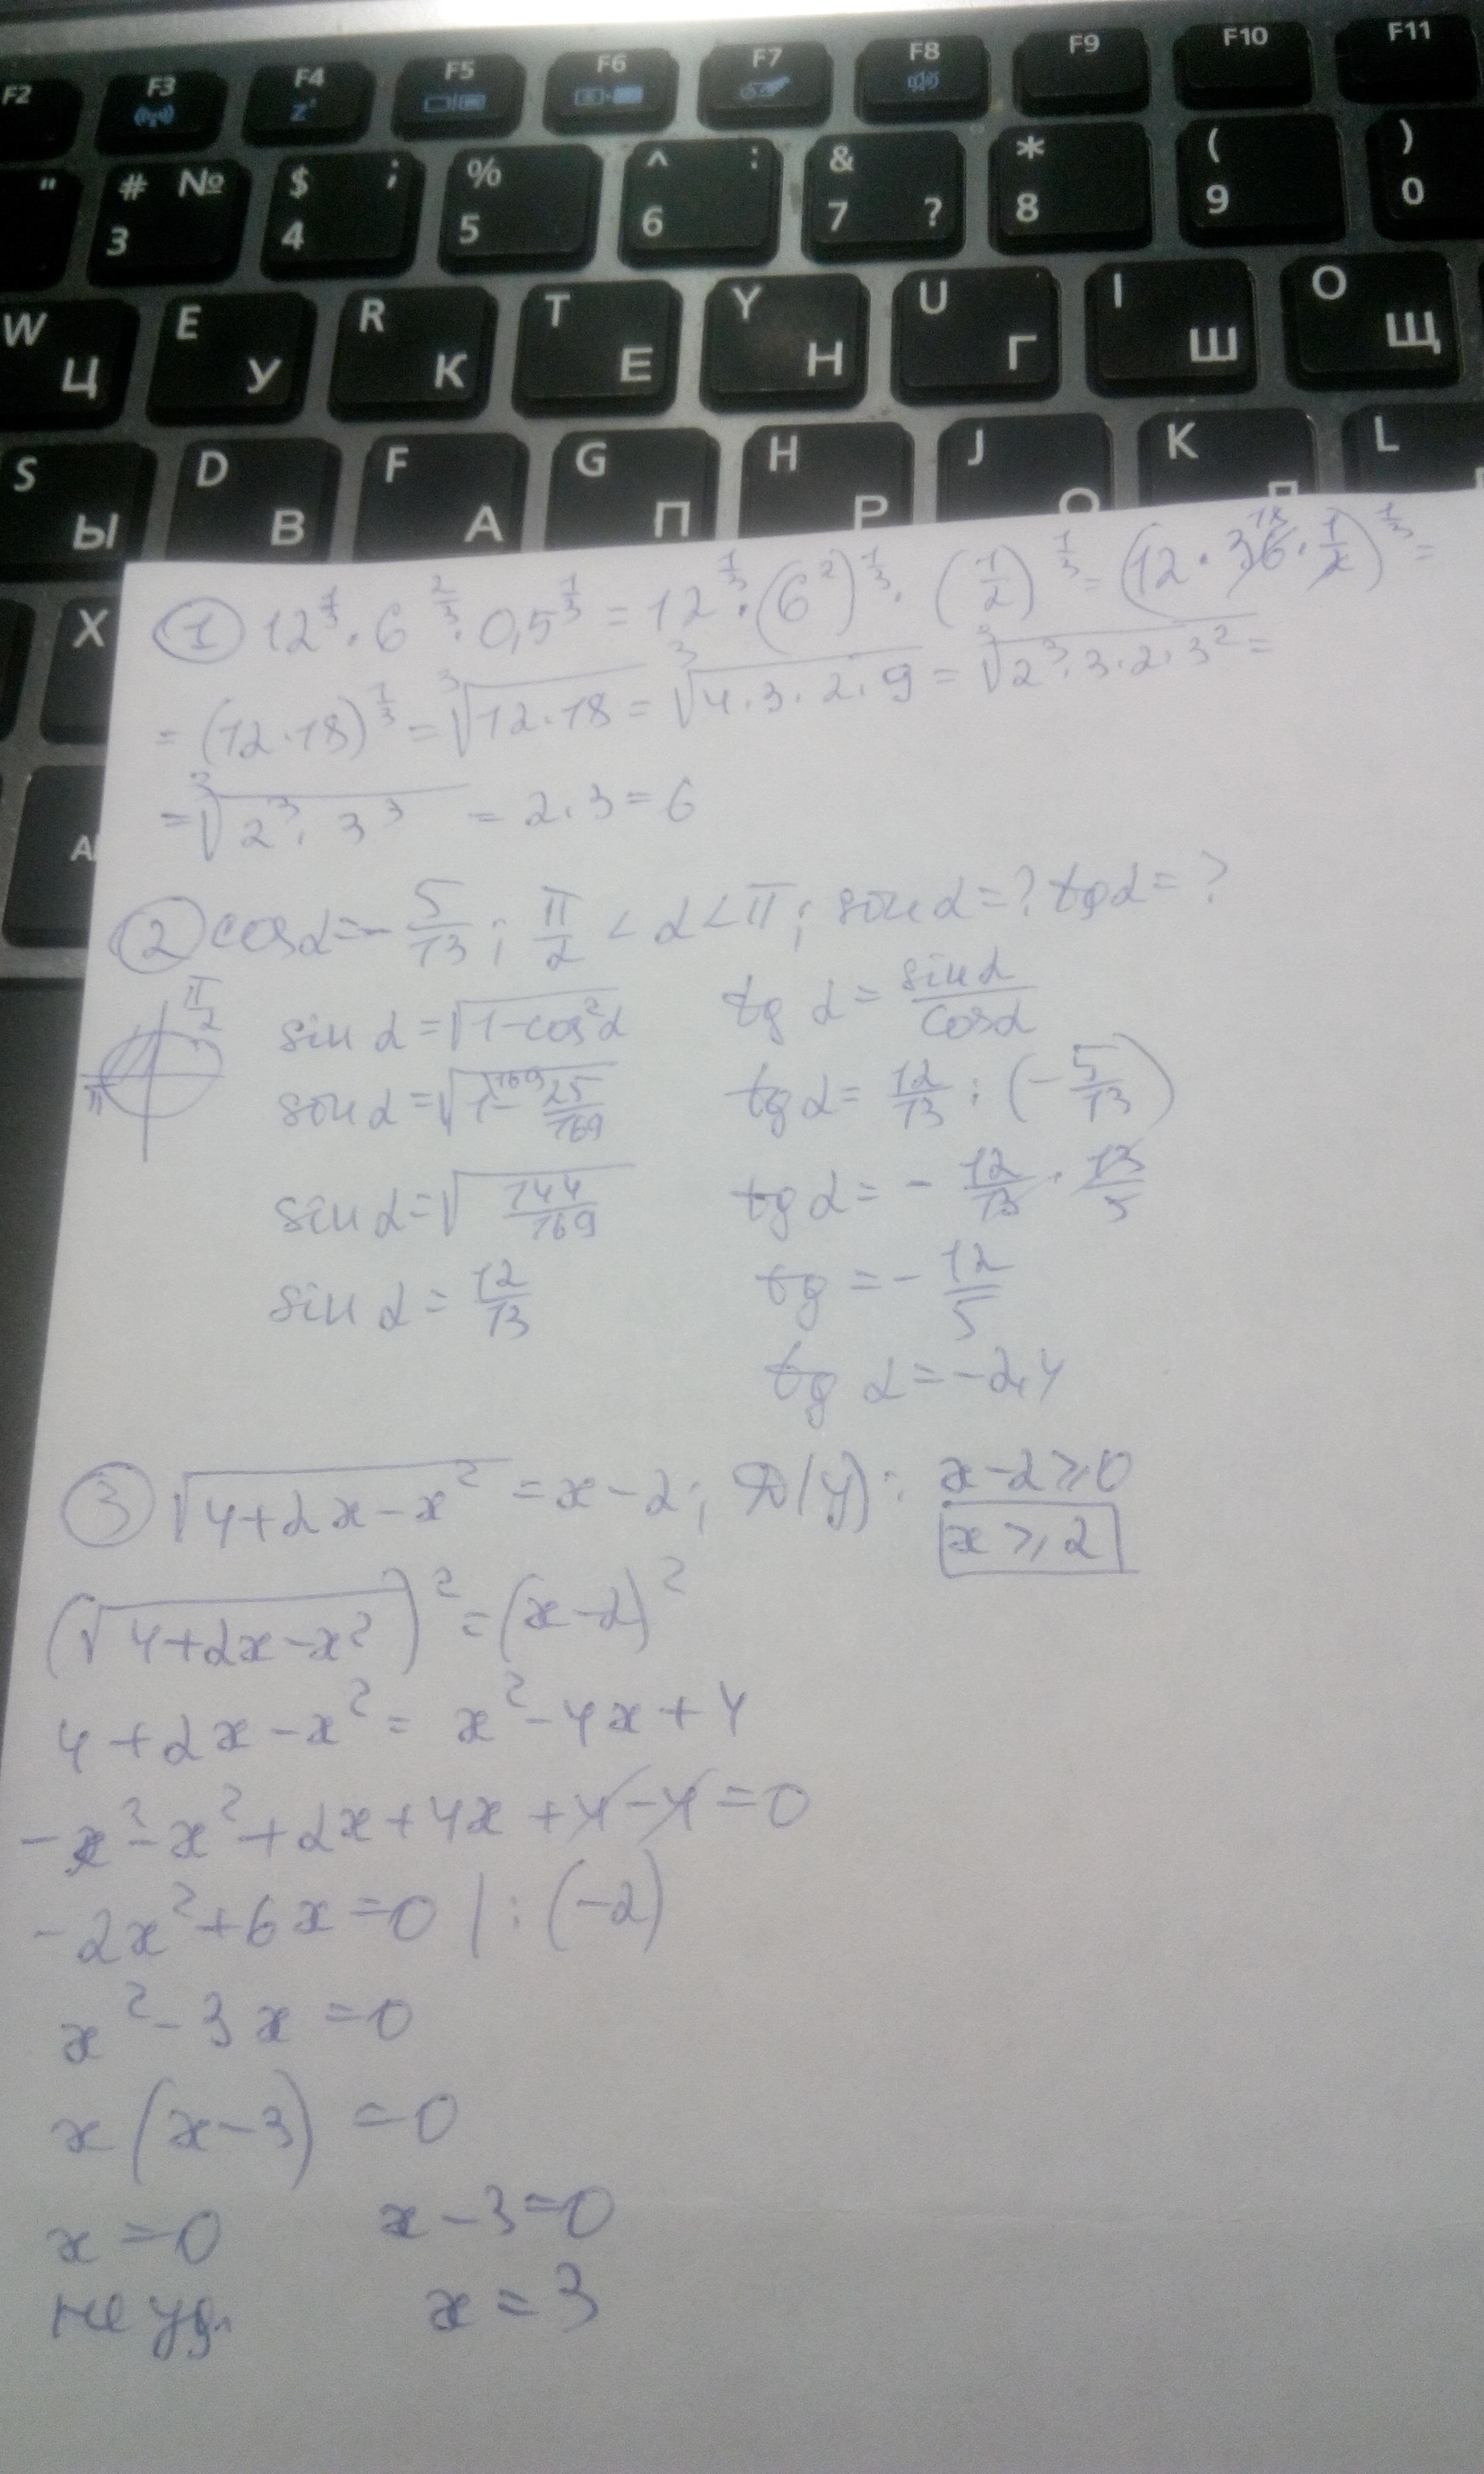 F2 F3 F4 F5 F6 F7 F8 F9 F10 F11
" # № 3 $ ; 4 % 5 ^ : 6 & 7 ? * 8 ( 9 ) 0
W Ц E У R К T Е Y Н U Г I Ш O Щ
S Ы D В F А G П H Р J О K Л L
X
① 12^{1/3} · 6^{2/3} · 0,5^{1/3} = 12^{1/3} · (6²)^{1/3} · (1/2)^{1/3} = (12 · 36^{18} · 1/2)^{1/3} =
= (12·18)^{1/3} = ∛(12·18) = ∛(4·3·2·9) = ∛(2³·3·2·3²) =
= ∛(2³·3³) = 2·3 = 6
② cosα = -5/13; π/2 < α < π; sinα = ? tgα = ?
π/2
π
sin α = √(1-cos²α) tg α = sinα/cosα
sinα = √(1^{169} - 25/169) tgα = 12/13 : (-5/13)
sinα = √(144/169) tgα = - 12/13 · 13/5
sin α = 12/13 tg = - 12/5
tg α = -2,4
③ √(4+2x-x²) = x-2; D(y): x-2≥0
x≥2
(√(4+2x-x²))² = (x-2)²
4+2x-x² = x²-4x+4
-x²-x²+2x+4x+4-4=0
-2x²+6x=0 |:(-2)
x²-3x=0
x(x-3)=0
x=0 x-3=0
не уд. x=3